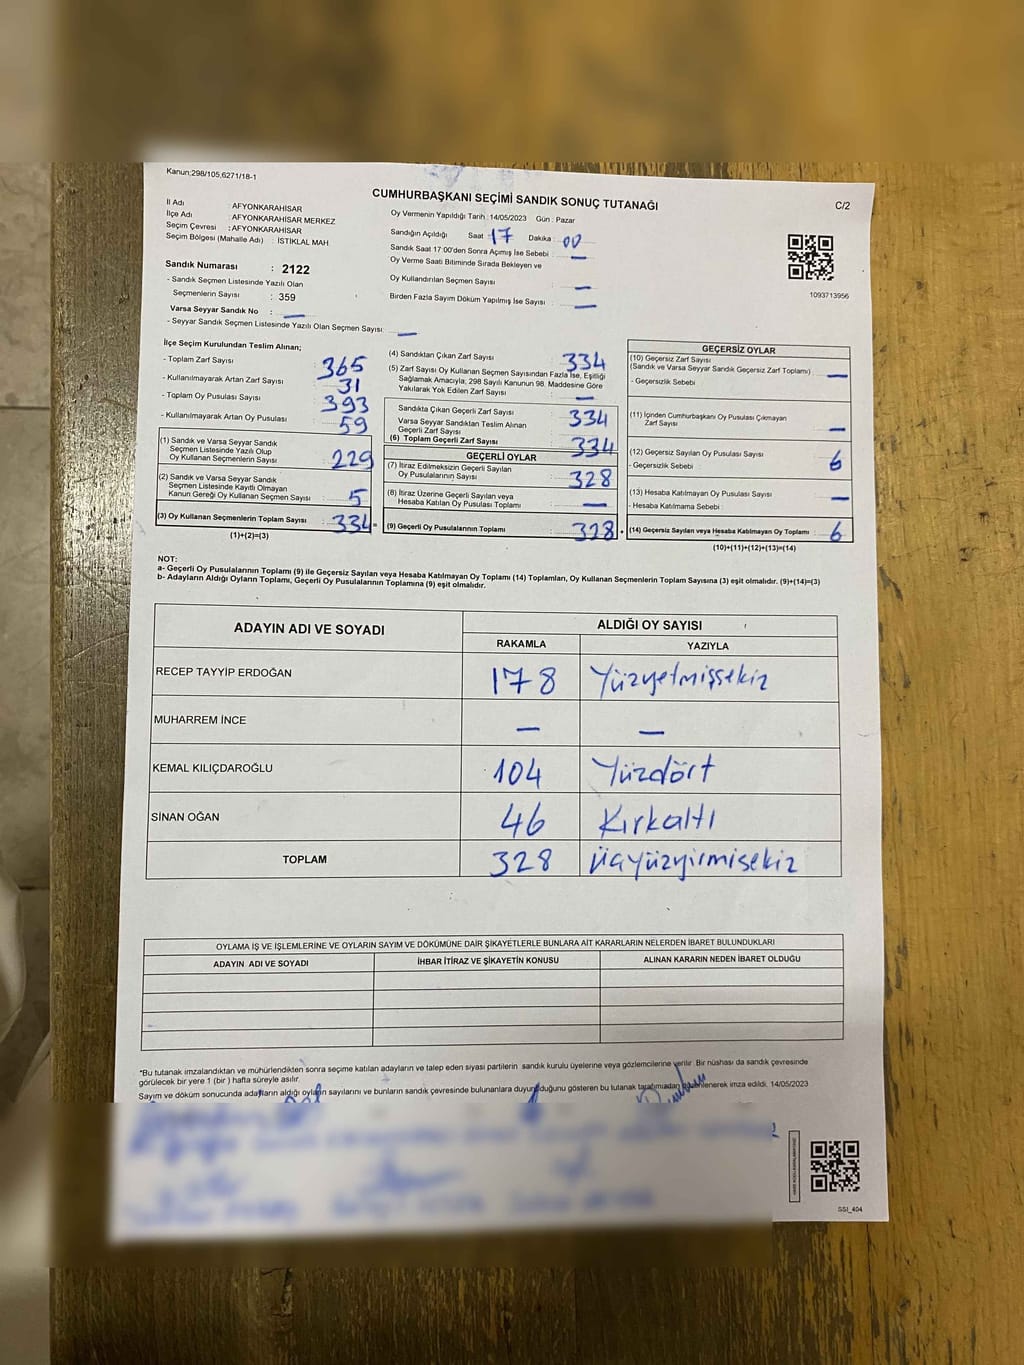 Kanun;298/105,6271/18-1
CUMHURBAŞKANI SEÇİMİ SANDIK SONUÇ TUTANAĞI
C/2
İl Adı : AFYONKARAHİSAR
İlçe Adı : AFYONKARAHİSAR MERKEZ
Seçim Çevresi : AFYONKARAHİSAR
Seçim Bölgesi (Mahalle Adı) : İSTİKLAL MAH
Sandık Numarası : 2122
- Sandık Seçmen Listesinde Yazılı Olan
Seçmenlerin Sayısı : 359
Varsa Seyyar Sandık No : —
- Seyyar Sandık Seçmen Listesinde Yazılı Olan Seçmen Sayısı : —
Oy Vermenin Yapıldığı Tarih : 14/05/2023 Gün : Pazar
Sandığın Açıldığı Saat : 17 Dakika : 00
Sandık Saat 17:00'den Sonra Açılmış İse Sebebi : —
Oy Verme Saati Bitiminde Sırada Bekleyen ve
Oy Kullandırılan Seçmen Sayısı : —
Birden Fazla Sayım Döküm Yapılmış İse Sayısı : —
1093713956
İlçe Seçim Kurulundan Teslim Alınan;
- Toplam Zarf Sayısı : 365
- Kullanılmayarak Artan Zarf Sayısı : 31
- Toplam Oy Pusulası Sayısı : 393
- Kullanılmayarak Artan Oy Pusulası : 59
(1) Sandık ve Varsa Seyyar Sandık
Seçmen Listesinde Yazılı Olup
Oy Kullanan Seçmenlerin Sayısı : 229
(2) Sandık ve Varsa Seyyar Sandık
Seçmen Listesinde Kayıtlı Olmayan
Kanun Gereği Oy Kullanan Seçmen Sayısı : 5
(3) Oy Kullanan Seçmenlerin Toplam Sayısı : 334 =
(1)+(2)=(3)
(4) Sandıktan Çıkan Zarf Sayısı : 334
(5) Zarf Sayısı Oy Kullanan Seçmen Sayısından Fazla İse, Eşitliği
Sağlamak Amacıyla; 298 Sayılı Kanunun 98. Maddesine Göre
Yakılarak Yok Edilen Zarf Sayısı : —
Sandıkta Çıkan Geçerli Zarf Sayısı : 334
Varsa Seyyar Sandıktan Teslim Alınan
Geçerli Zarf Sayısı
(6) Toplam Geçerli Zarf Sayısı : 334
GEÇERLİ OYLAR
(7) İtiraz Edilmeksizin Geçerli Sayılan
Oy Pusulalarının Sayısı : 328
(8) İtiraz Üzerine Geçerli Sayılan veya
Hesaba Katılan Oy Pusulası Toplamı : —
(9) Geçerli Oy Pusulalarının Toplamı : 328 +
GEÇERSİZ OYLAR
(10) Geçersiz Zarf Sayısı
(Sandık ve Varsa Seyyar Sandık Geçersiz Zarf Toplamı) : —
- Geçersizlik Sebebi :
(11) İçinden Cumhurbaşkanı Oy Pusulası Çıkmayan
Zarf Sayısı : —
(12) Geçersiz Sayılan Oy Pusulası Sayısı : 6
- Geçersizlik Sebebi :
(13) Hesaba Katılmayan Oy Pusulası Sayısı : —
- Hesaba Katılmama Sebebi :
(14) Geçersiz Sayılan veya Hesaba Katılmayan Oy Toplamı : 6
(10)+(11)+(12)+(13)=(14)
NOT:
a- Geçerli Oy Pusulalarının Toplamı (9) ile Geçersiz Sayılan veya Hesaba Katılmayan Oy Toplamı (14) Toplamları, Oy Kullanan Seçmenlerin Toplam Sayısına (3) eşit olmalıdır. (9)+(14)=(3)
b- Adayların Aldığı Oyların Toplamı, Geçerli Oy Pusulalarının Toplamına (9) eşit olmalıdır.
ADAYIN ADI VE SOYADI ALDIĞI OY SAYISI
RAKAMLA YAZIYLA
RECEP TAYYİP ERDOĞAN 178 Yüzyetmişsekiz
MUHARREM İNCE — —
KEMAL KILIÇDAROĞLU 104 Yüzdört
SİNAN OĞAN 46 Kırkaltı
TOPLAM 328 Üçyüzyirmisekiz
OYLAMA İŞ VE İŞLEMLERİNE VE OYLARIN SAYIM VE DÖKÜMÜNE DAİR ŞİKAYETLERLE BUNLARA AİT KARARLARIN NELERDEN İBARET BULUNDUKLARI
ADAYIN ADI VE SOYADI İHBAR İTİRAZ VE ŞİKAYETİN KONUSU ALINAN KARARIN NEDEN İBARET OLDUĞU
*Bu tutanak imzalandıktan ve mühürlendikten sonra seçime katılan adayların ve talep eden siyasi partilerin sandık kurulu üyelerine veya gözlemcilerine verilir. Bir nüshası da sandık çevresinde
görülecek bir yere 1 (bir ) hafta süreyle asılır.
Sayım ve döküm sonucunda adayların aldığı oyların sayılarını ve bunların sandık çevresinde bulunanlara duyurulduğunu gösteren bu tutanak tarafımızdan düzenlenerek imza edildi. 14/05/2023
SSI_404